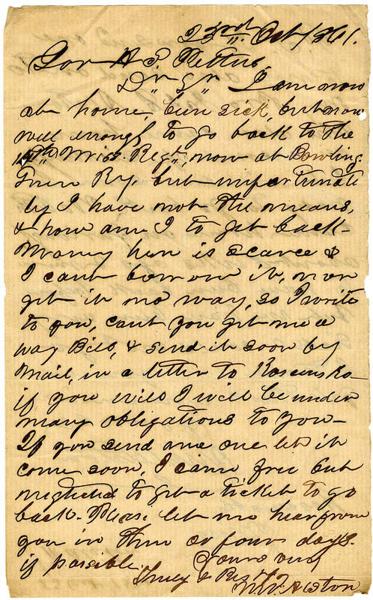 23rd Oct/1861.
Gov. J. J. Pettus,
Dr Sr I am now
at home, ben sick, but now
well enough to go back to the
14th Miss. Regt. now at Bowling
Green Ky, but unfortunate
ly I have not the means,
& how am I to get back -
Money here is scarce &
I cant borrow it, nor
get it no way, so I write
to you, cant you get me a
way Bill, & send it soon by
Mail, in a letter to
if you will I will be under
many obligations to you -
If you send me one let it
come soon, I came free but
neglected to get a ticket to go
back. Pleas let me hear from
you in three or four days.
if possible,
Yours very
Truly &